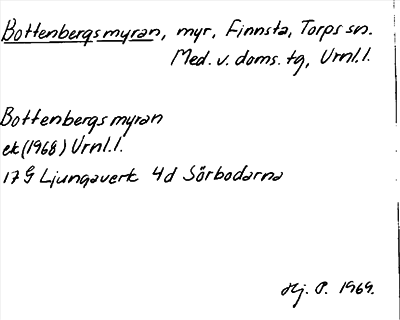 Bottenbergsmyran, myr, Finnsta, Torps sn.
Med. v. doms. tg, Vrnl.l.
Bottenbergsmyran
ek (1968) Vrnl.l.
17 G Ljungaverk 4d Sörbodarna
Hj. P. 1969.